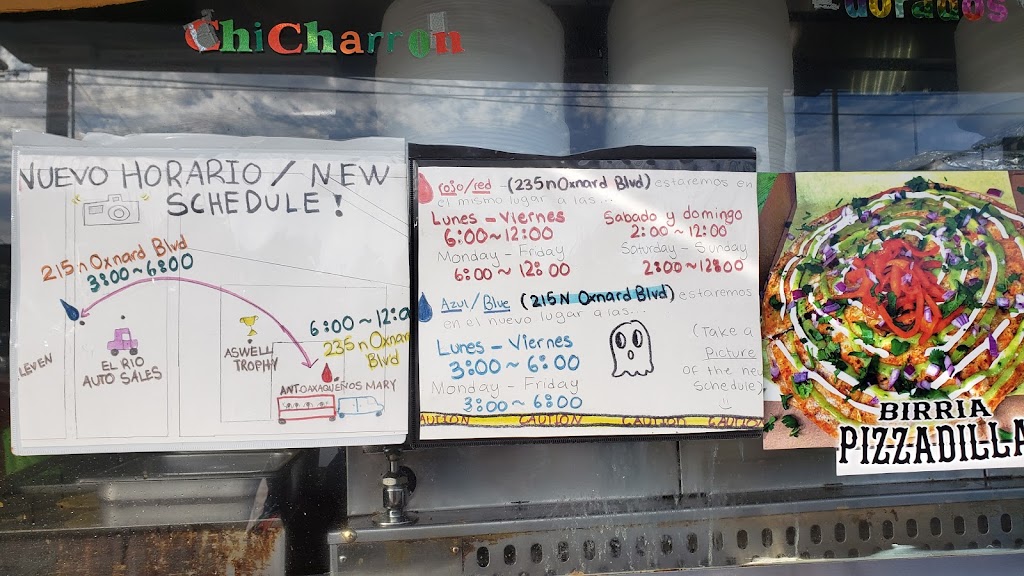 ChiCharron
NUEVO HORARIO / NEW
SCHEDULE!
215 n Oxnard Blvd
3:00~6:00
EL RIO
AUTO SALES
ASWELL
TROPHY
6:00~12:0
235 n Oxna
Blvd
ANTOJOAXAQUEÑOS MARY
rojo/red (235 n Oxnard Blvd) estaremos en
el mismo lugar a las...
Lunes - Viernes
6:00~12:00
Monday - Friday
6:00~12:00
Sabado y domingo
2:00~12:00
Saturday - Sunday
2:00~12:00
Azul/Blue (215 N Oxnard Blvd) estaremos
en el nuevo lugar a las...
Lunes - Viernes
3:00~6:00
Monday - Friday
3:00~6:00
(Take a
Picture
of the new
Schedule)
CAUTION CAUTION CAUTION CAUTION
BIRRIA
PIZZADILLA